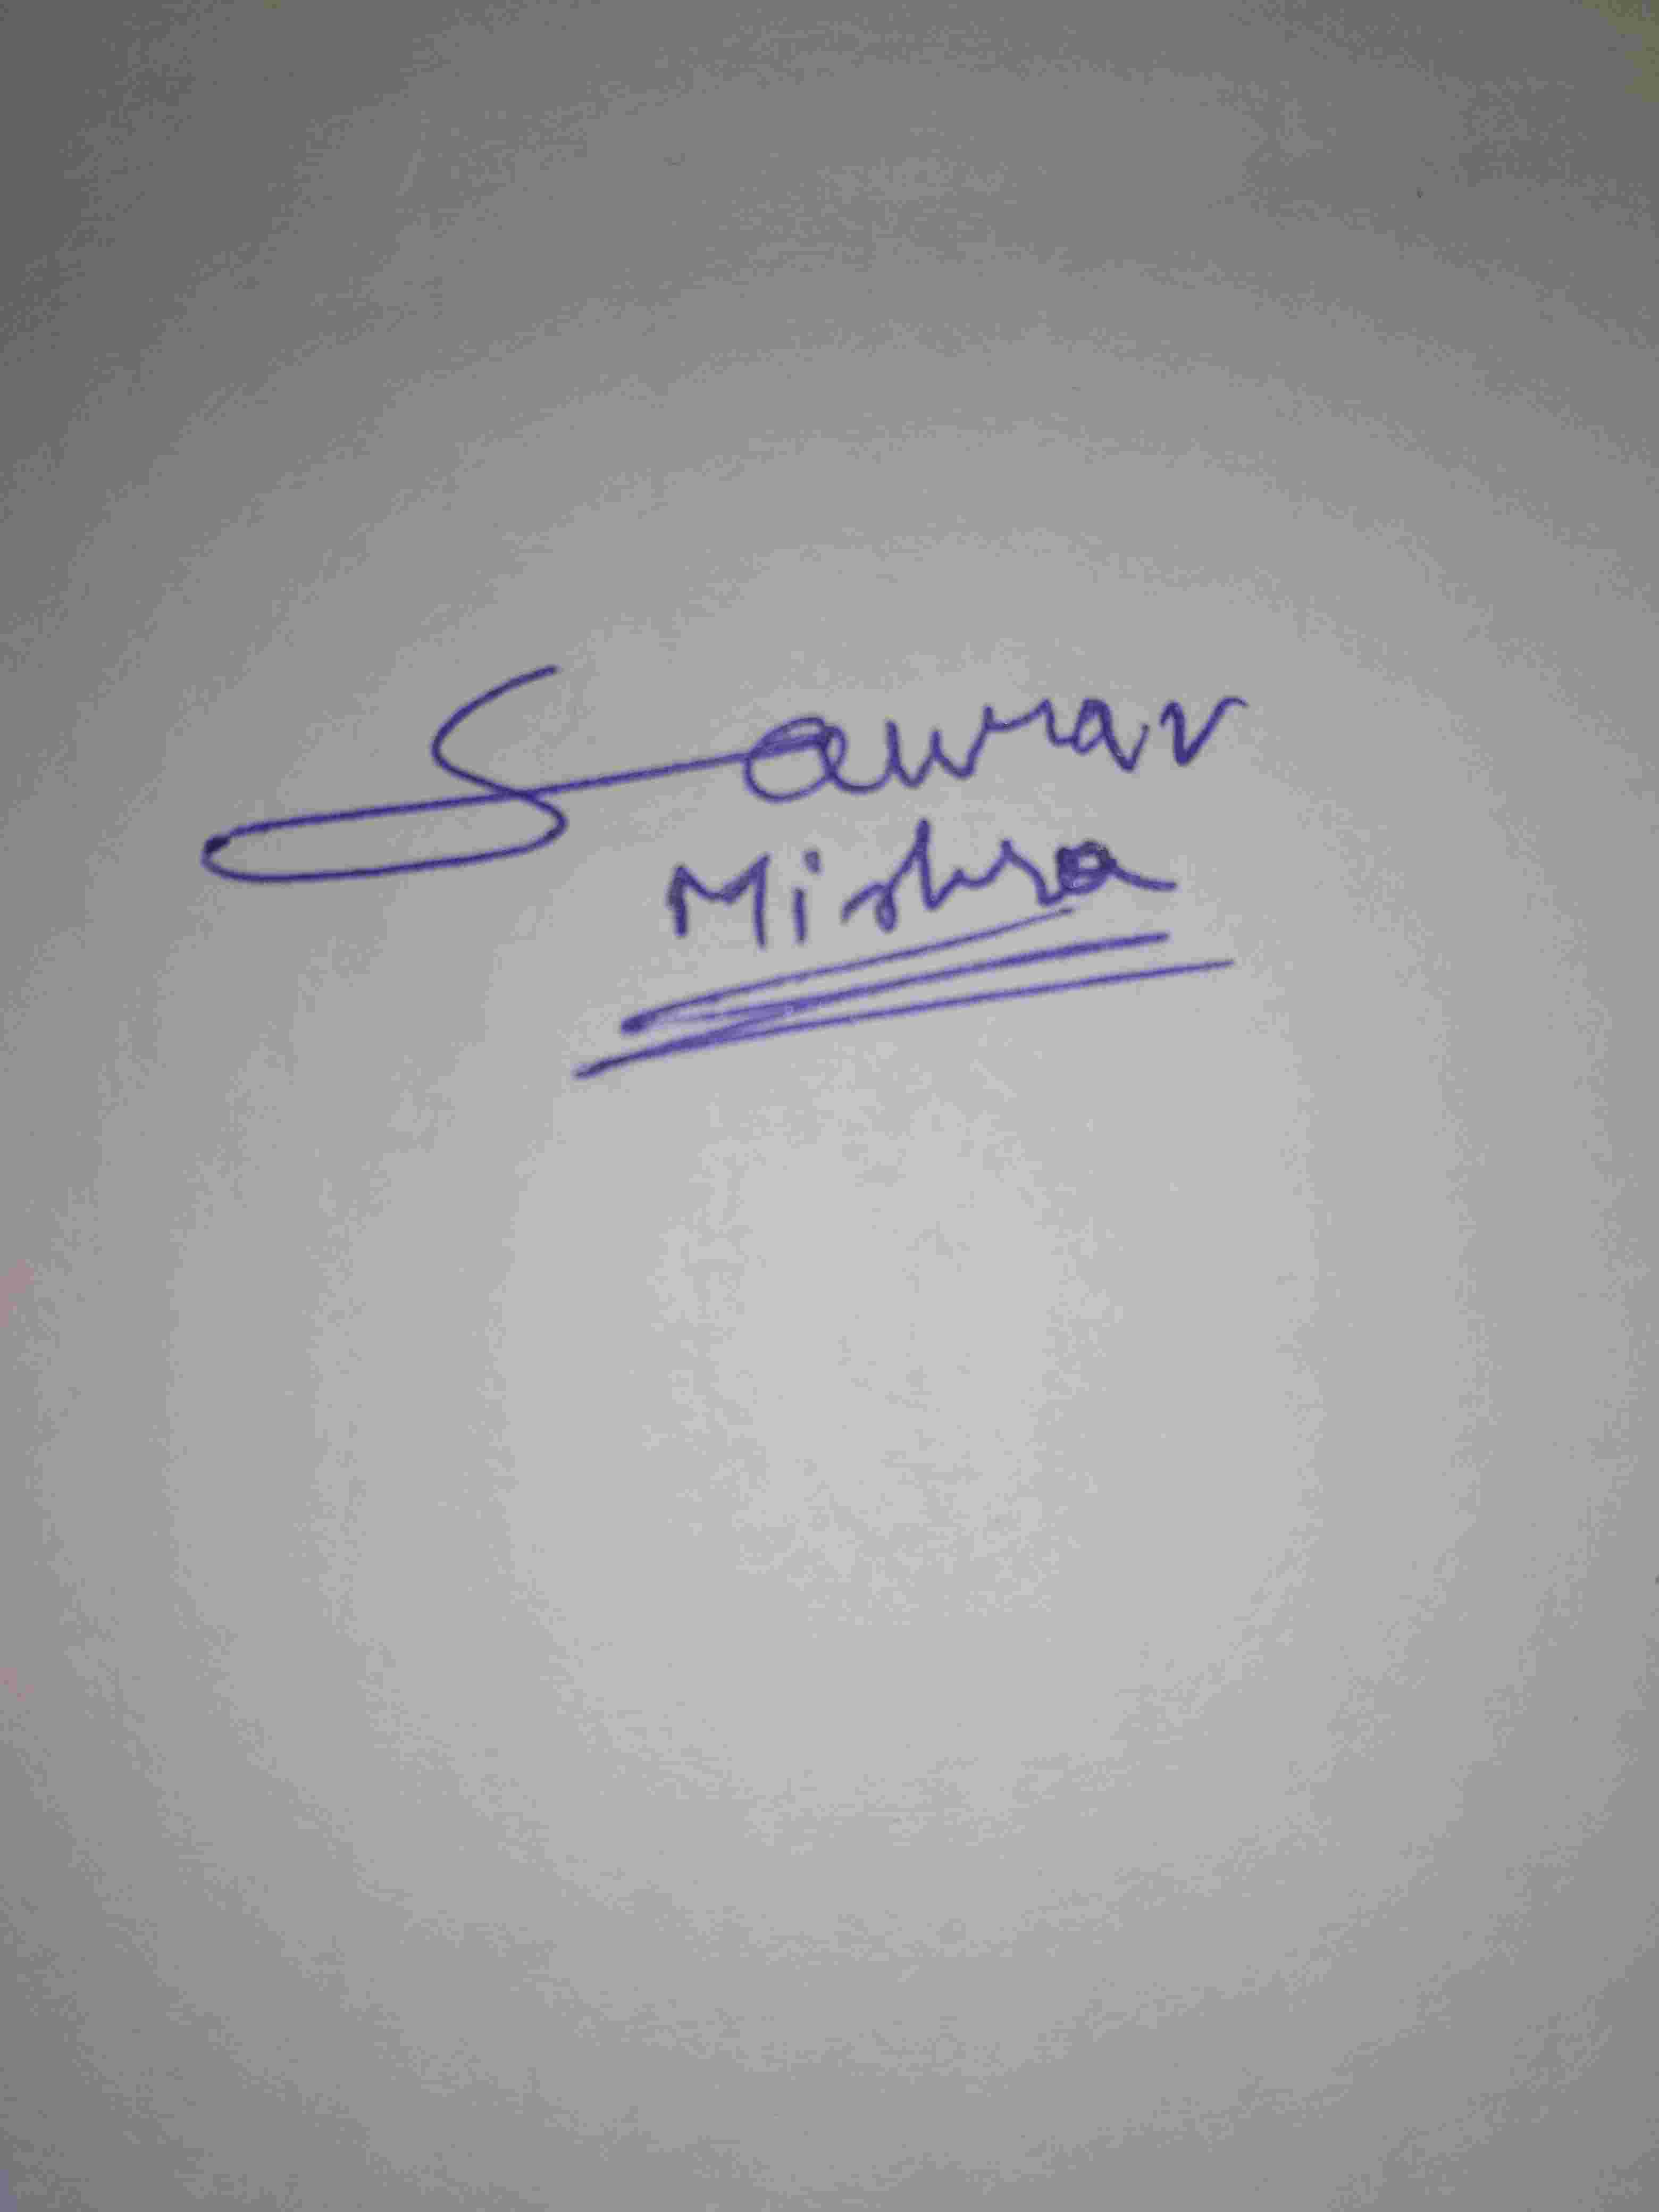 Saurav
Mishra